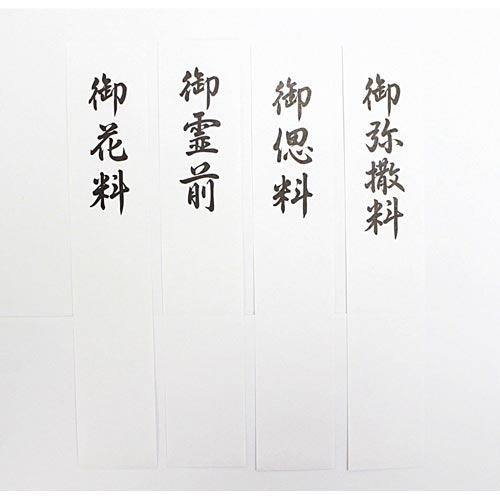 御弥撒料
御偲料
御霊前
御花料